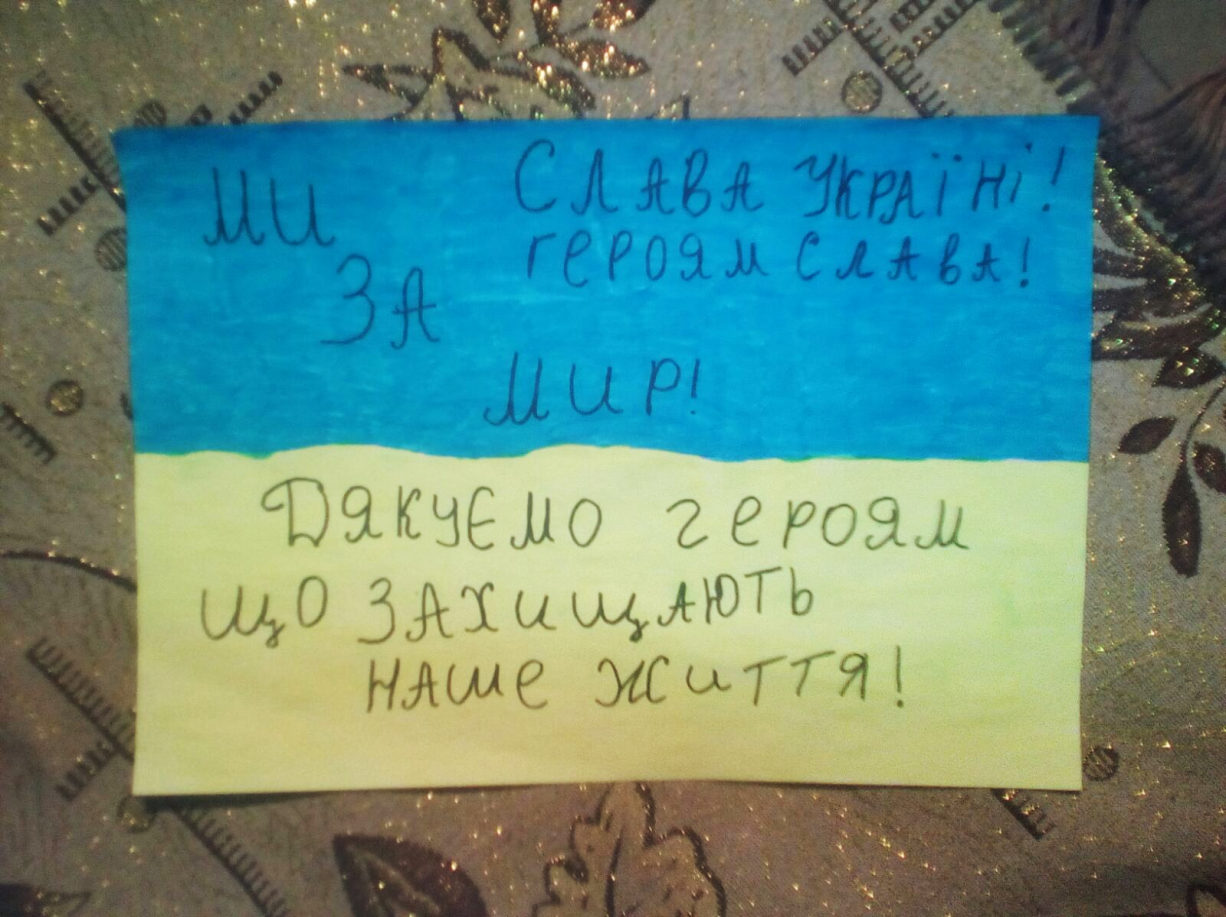 Ми
за
мир!
Слава Україні!
Героям слава!
Дякуємо героям
що захищають
наше життя!